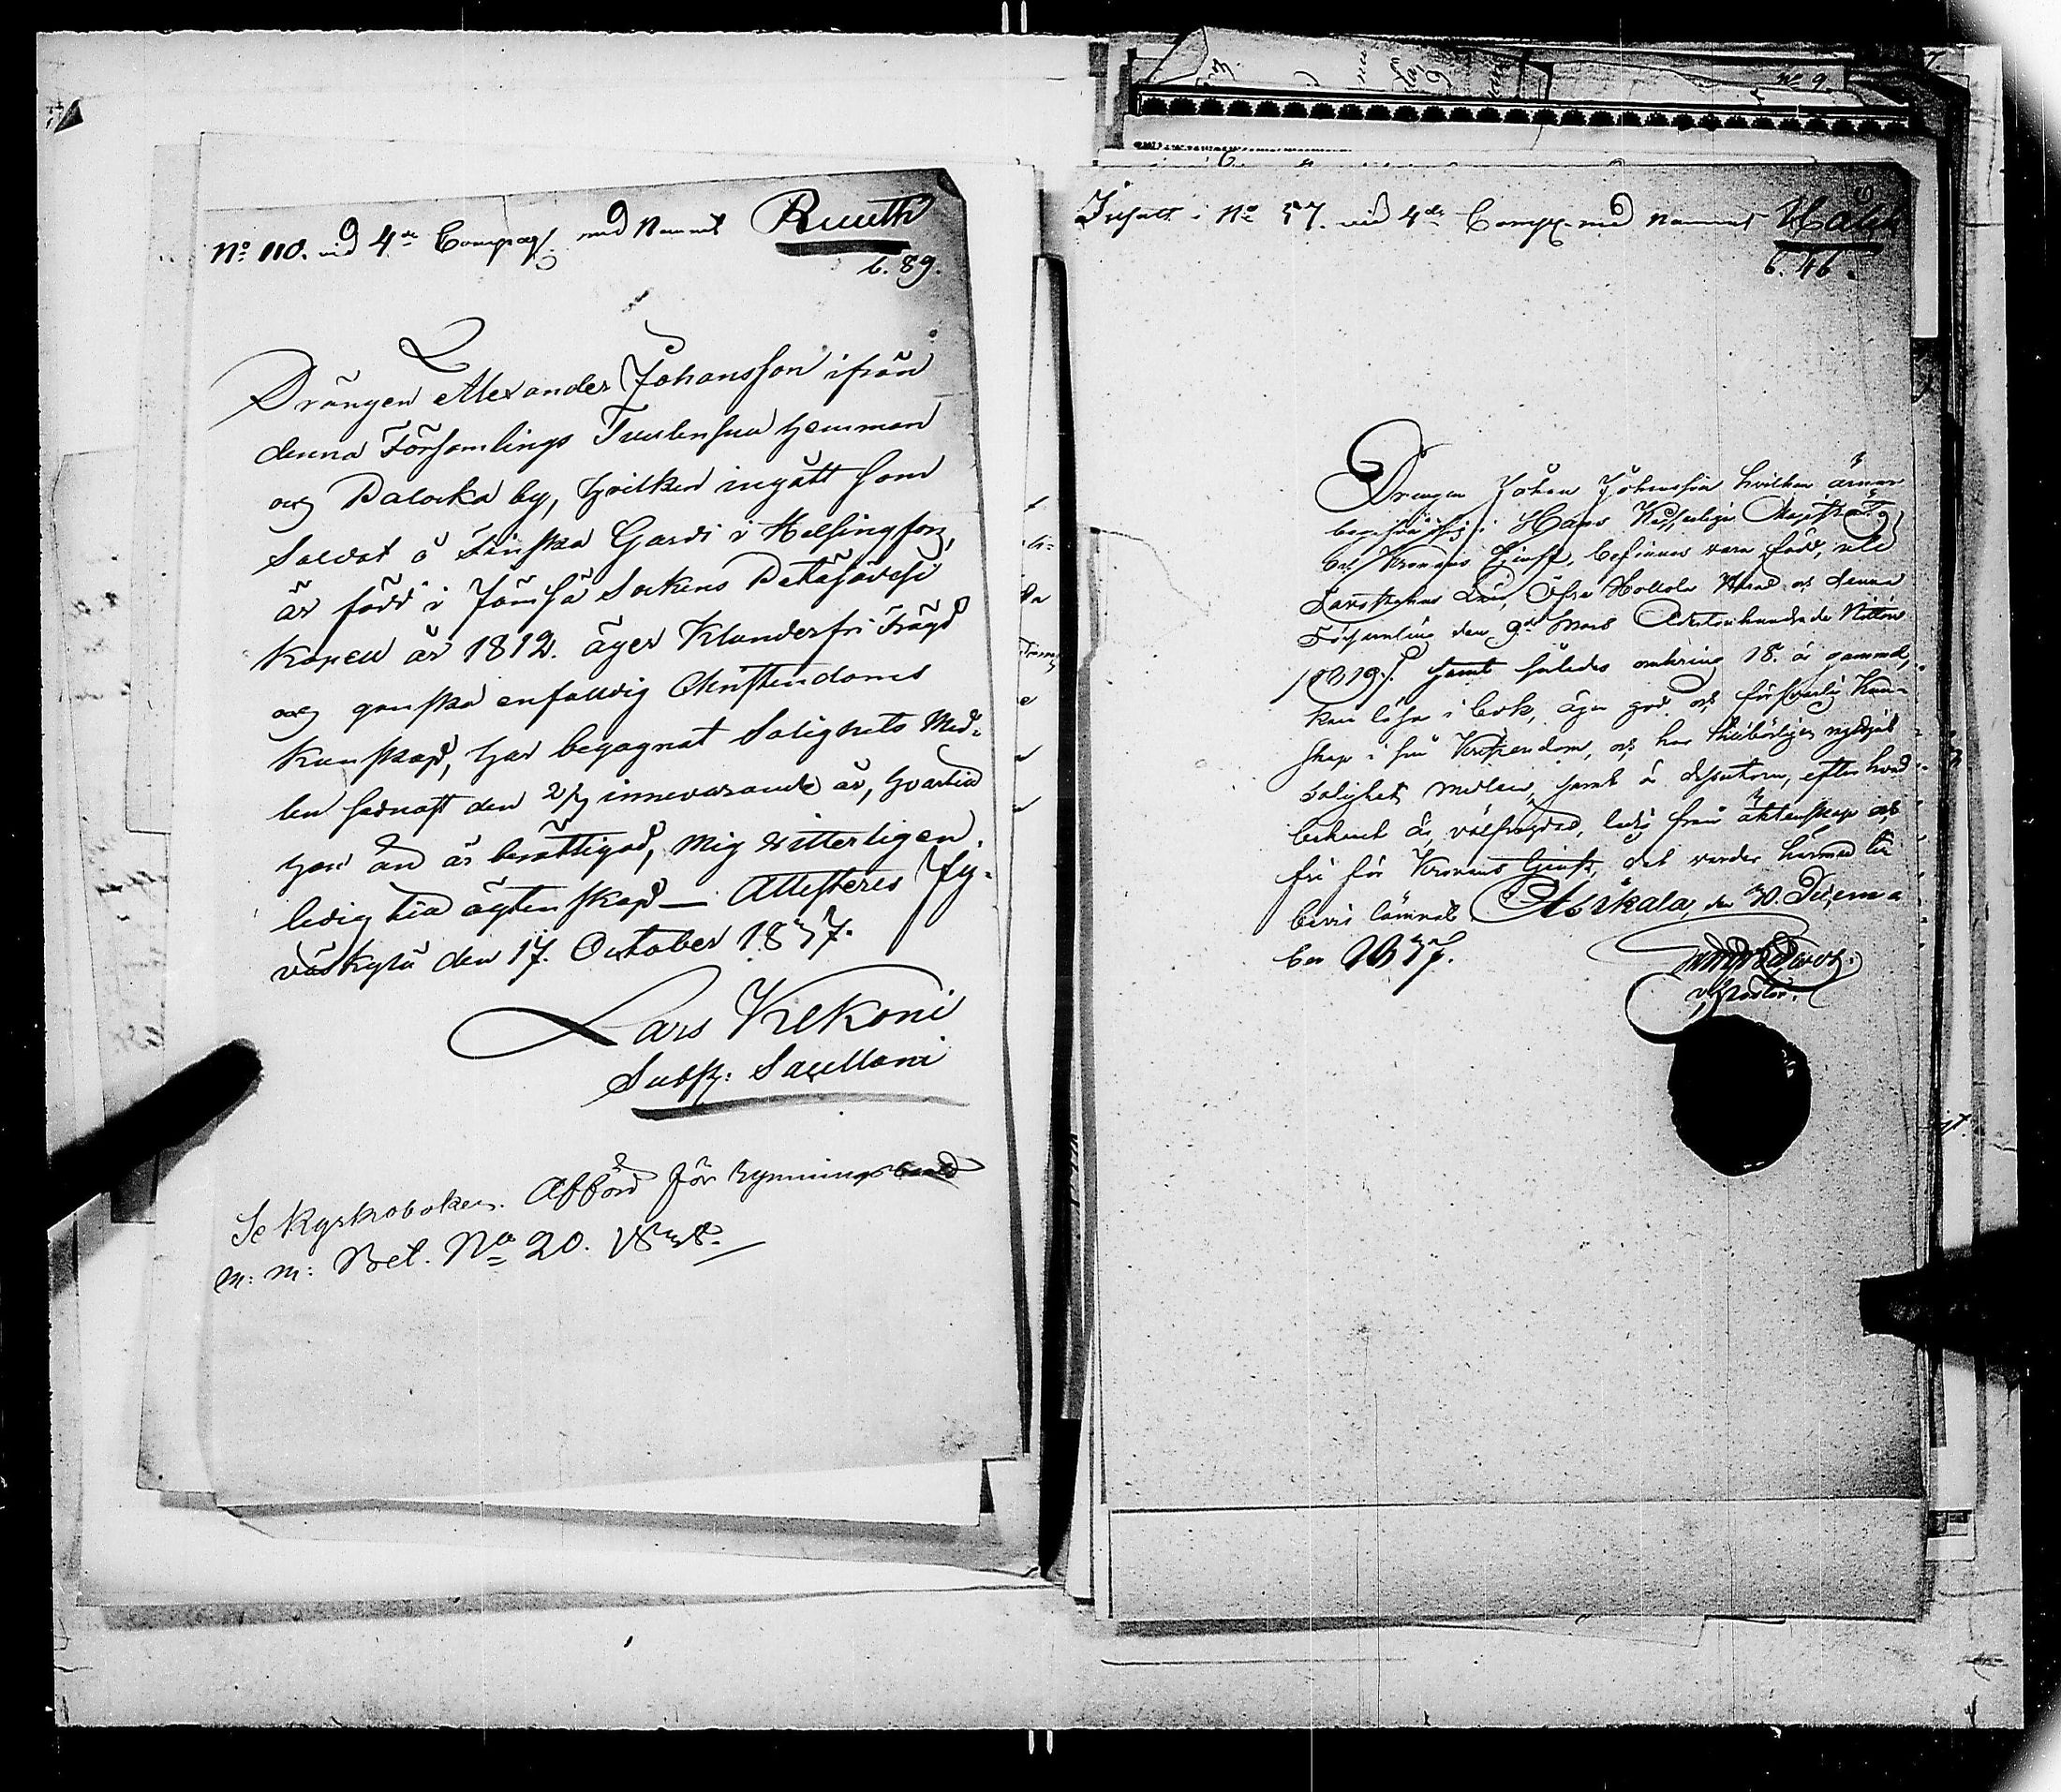 No 110. vid 4de Compagt med Namnet Ruuth
b. 89.
Drängen Alexander Johansson ifrån
denna Församlings hemman
och Palocka by, hvilken ingått som
Soldat å Finska Gardi i Helsingfors,
är född i Jämsä Sockens Petäjävesi
Kapell år 1812. äger Klanderfri Frägd
och ganska enfalldig Christendoms
Kunskap, har begagnat Salighets Med-
len sednast den 2/7 innevarande år, hvartill
han än är berättigad, Mig vitterligen
ledig till ägtenskap — Attesteres Jy-
väskylä den 17. October 1837.
Lars Kekoni
Subst: Sacellani
Se Kyrkoboken. Afförd för rymning
m: m: Bet. No 20. 1838.
Insatt i No 57. vid 4de Comp. med Namnet
b. 46.
Drängen Johan Johansson hvilken ämnar
begifva sig i Hans Kejserliga Majestäts
och Kronans tjenst, befinnes vara född, uti
Tavastehus Län, Öfre Hollola Härad och denna
Församling den 9de Mars Adertonhundrade Nitton
/1819/. samt således omkring 18. år gammal,
kan läsa i bok, äger god och försvarlig Kun-
skap i sin Kristendom, och har tillbörligen nyttjat
Salighets medlen, samt är dessutom, efter hvad
bekant är välfrägdad, ledig från äktenskap och
fri för Kronans tjenst, det varder härmed till
bevis lämnat Asikala, den 30. Decem-
ber 1837.
v. Pastor.